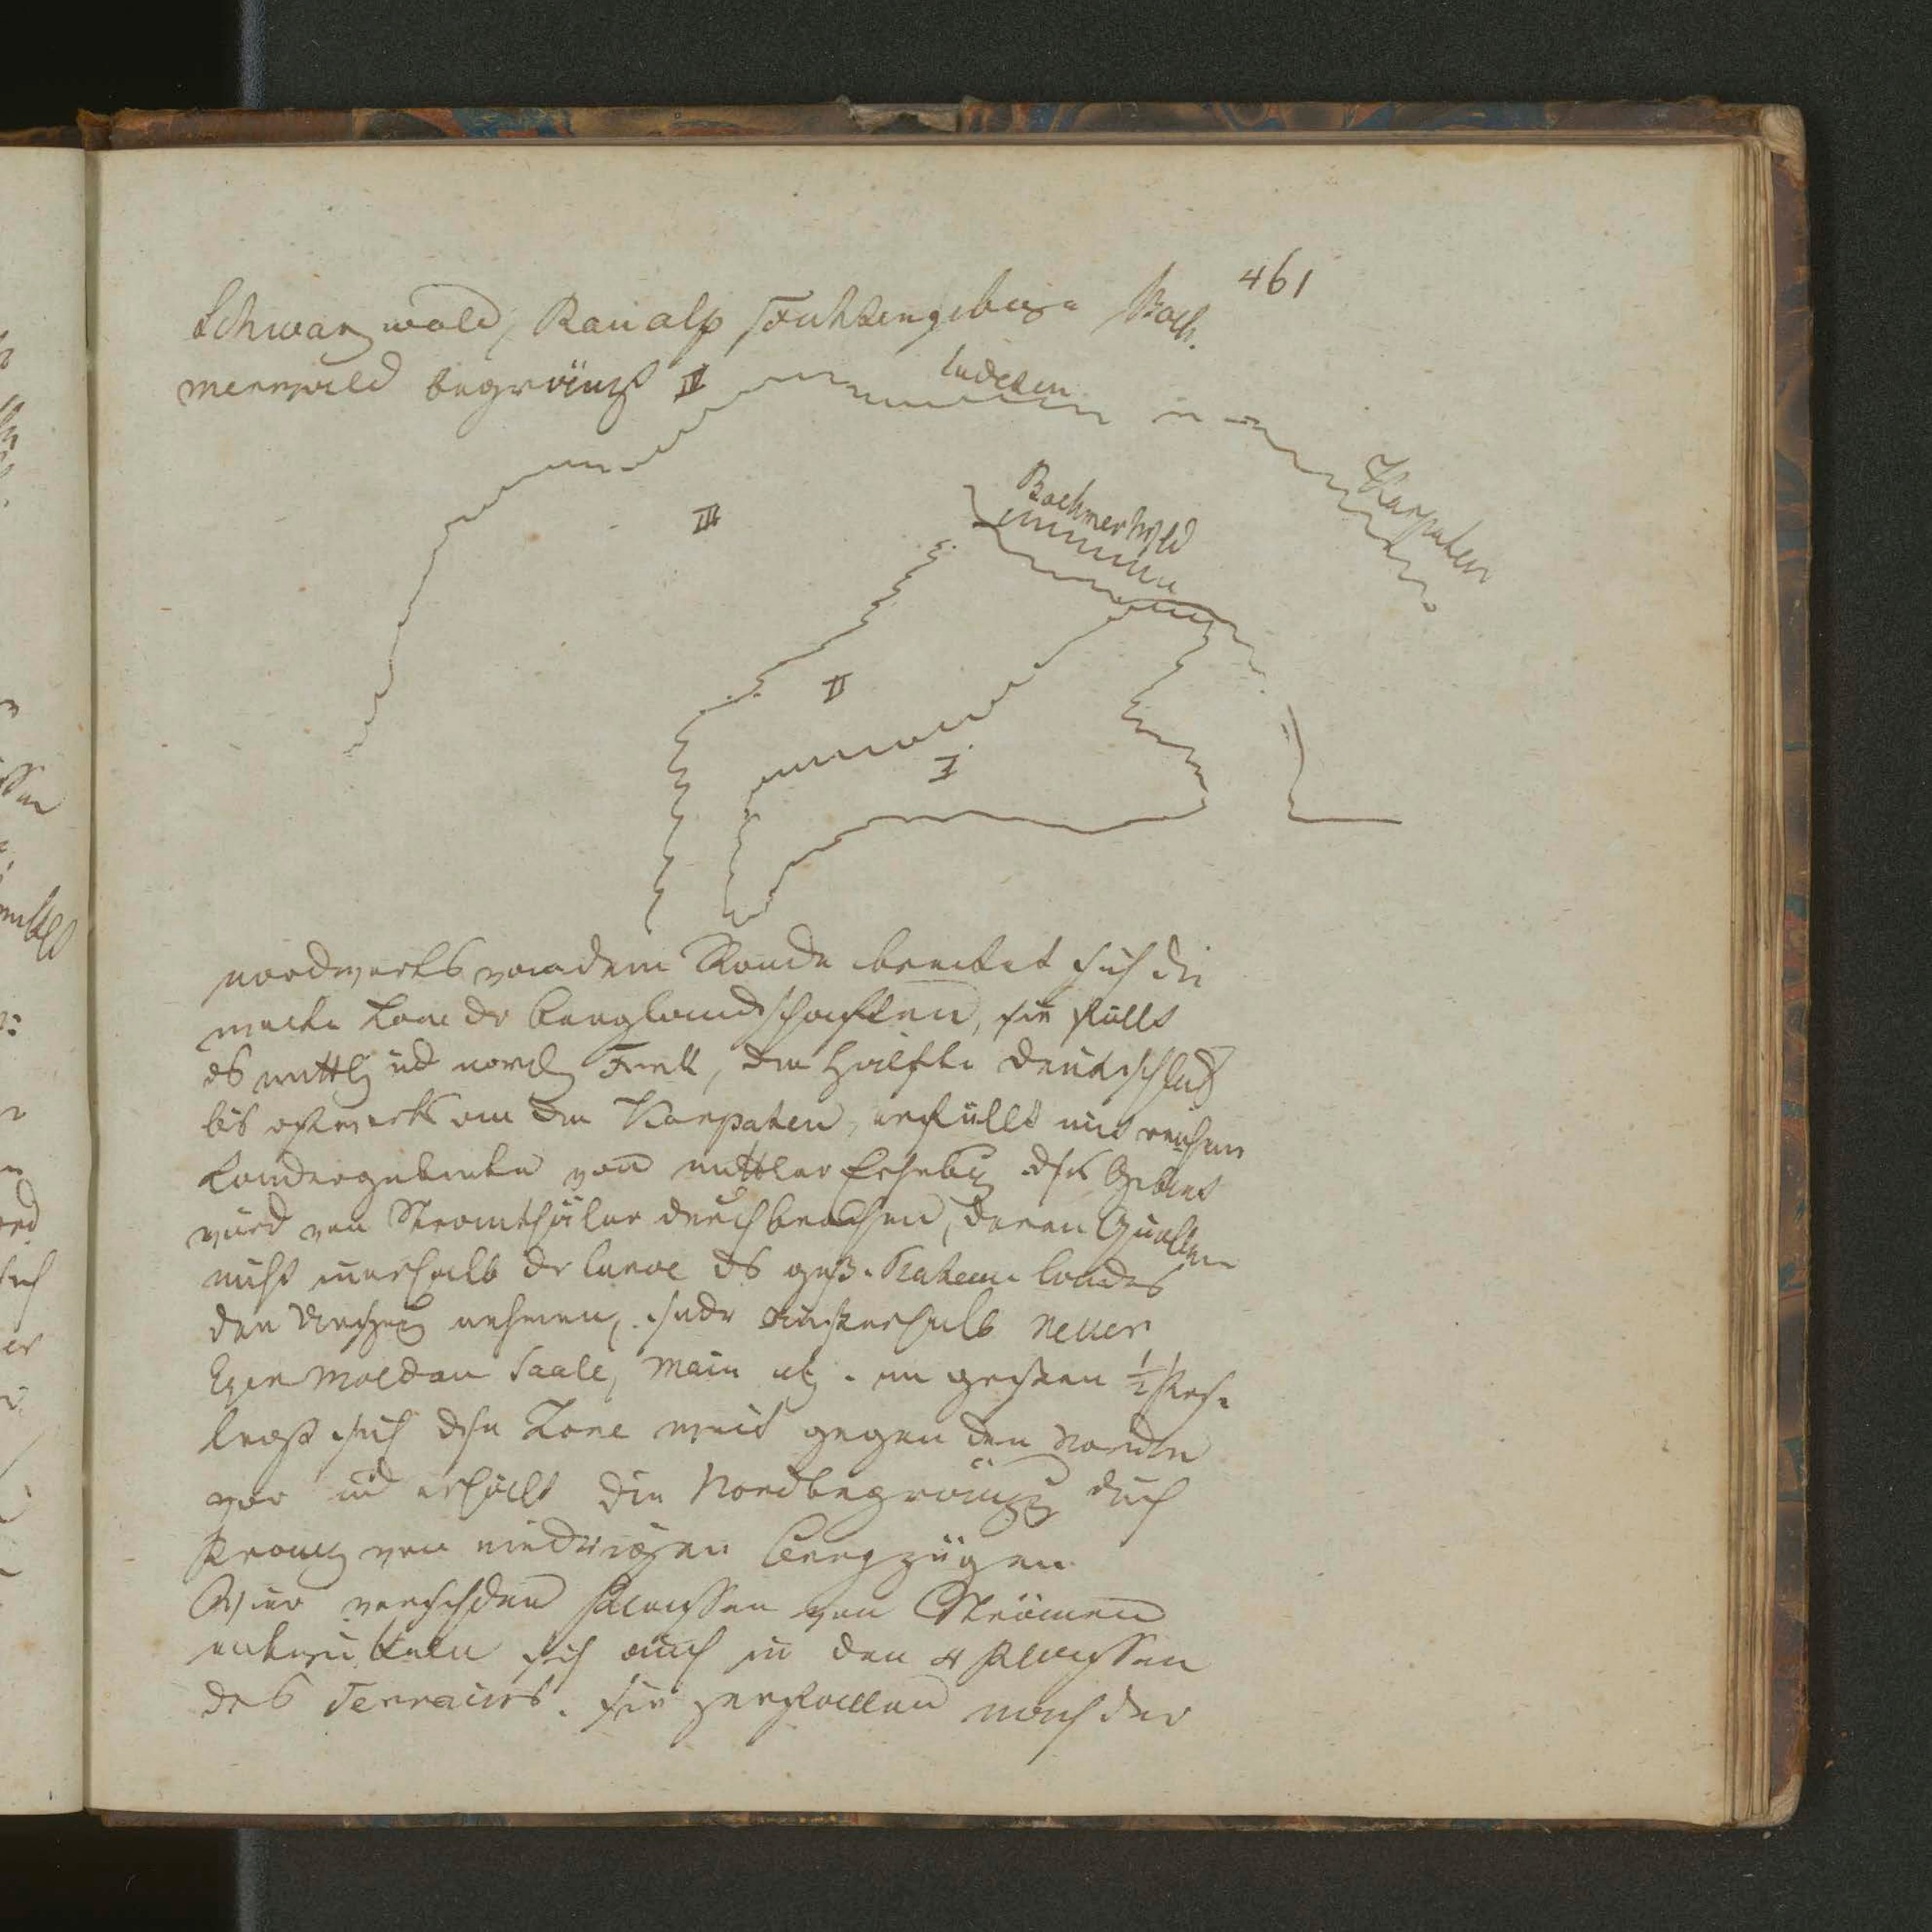 461
Schwarzwald, Raualp, Fichtengebirge Boeh.
merwald begränzt IV
Sudeten
Karpaten
Boehmerwld
III
II
I
nordwerts von dem Rande breitet sich die
Zone der Berglandschaften, sie füllt
ds mittl und nordl , die Hälfte Deutschlds
bis ostwerts an die Karpaten, erfüllt mit reichen
Landergebieten von mittler Erhebg. dss Gebiet
wird von Stromthäler durchbrochen, deren Quellen
nicht innerhalb der ds Landes
den Ursprung nehmen, sondr außerhalb
Eger Moldau Saale, Main etz. im großen ½
sich dse Zone weit gegen den Norden
vor und erhält die Nordbegränzg durch
Kranz von niedrigen Bergzügen.
Vier verschden Klassen von Strömen
entwickeln sich auch in den 4 Klassen
des Terrains. sie zerfallen nach der